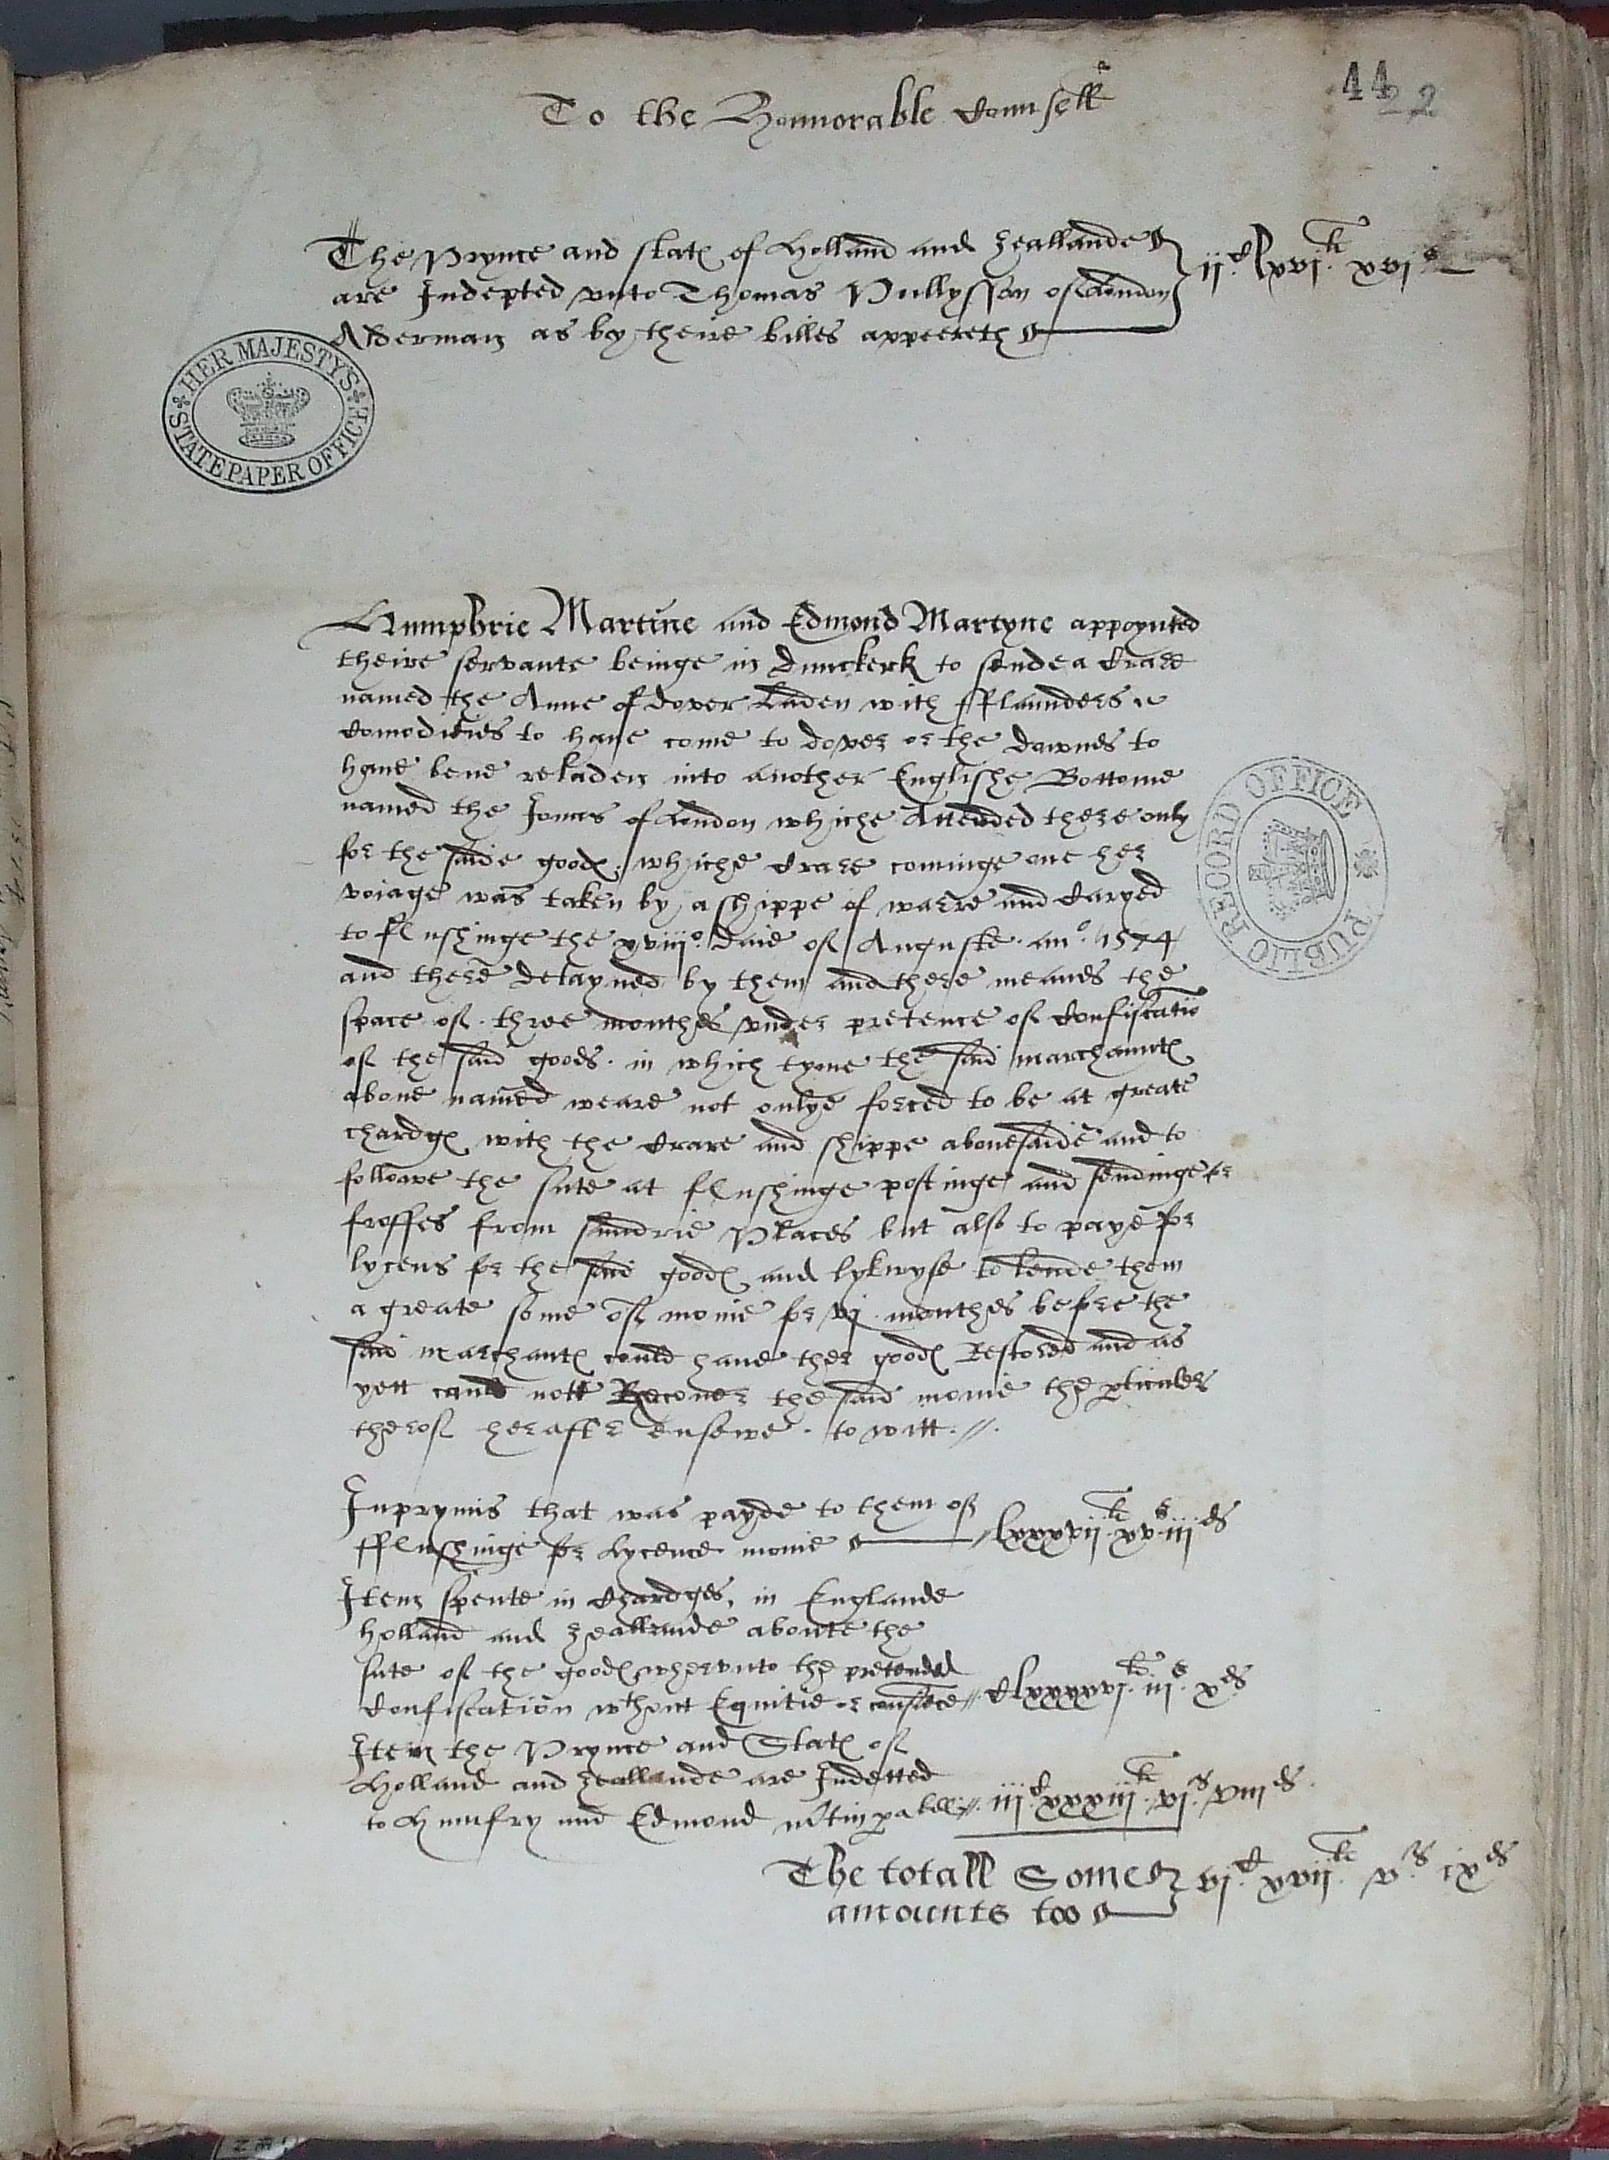 44
22
To the Honnorable Counsell
The Prynce and stat of Holland and Zeallande
are Indepted vnto Thomas Pullysson of London
Alderman as by theire billes appeereth
ii.C lxvi.li xvi s
HER MAJESTY'S STATE PAPER OFFICE
Humphrie Martine and Edmond Martyne appoynted
theire servante beinge in Dunckerk to sende a Crare
named the Anne of Dover Laden with fflaunders
Comodities to have come to Dover or the Downes to
have bene reladen into another Englishe Bottome
named the Jonas of London whiche Attended there only
for the saide good, whiche Crare cominge one her
voiage was taken by a shippe of warre and Caryed
to flushinge the xviijo. daie of Auguste ano. 1574
and there detayned by them and there meanes the
space of three monthes vnder pretence of Confiscatio
of the said goods. in which tyme the said marchaunt
above named weare not onlye forced to be at greate
chardg with the Crare and shippe abovesaide and to
followe the sute at flushinge postinge and sendinge for
froffes from sundrie Places but also to paye for
lycens for the said good and lykwyse to lende them
a greate some of monie for vj monthes before the
said marchant could have ther good Restored and as
yett cane nott Recover the said monie the pticulers
therof herafter ensewe. to witt.//.
Inprymis that was payde to them of
fflushinge for Lycence monie lxxxvii.li xv.s iii ds
Item spente in Chardges, in Englande
Holland and Zeallande aboute the
sute of the good whervnto the pretended
Confiscation wthout Equitie or consiece // Clxxxxvi.li iii.s x ds
Item the Prynce and Stat of
Holland and Zeallande are Indetted
to Humfry and Edmond mtin pa bill // iii.C xxxiii.li vi.s viii ds.
The totall Some
amounts too
vi.C xvii.li v.s ix ds
PUBLIC RECORD OFFICE